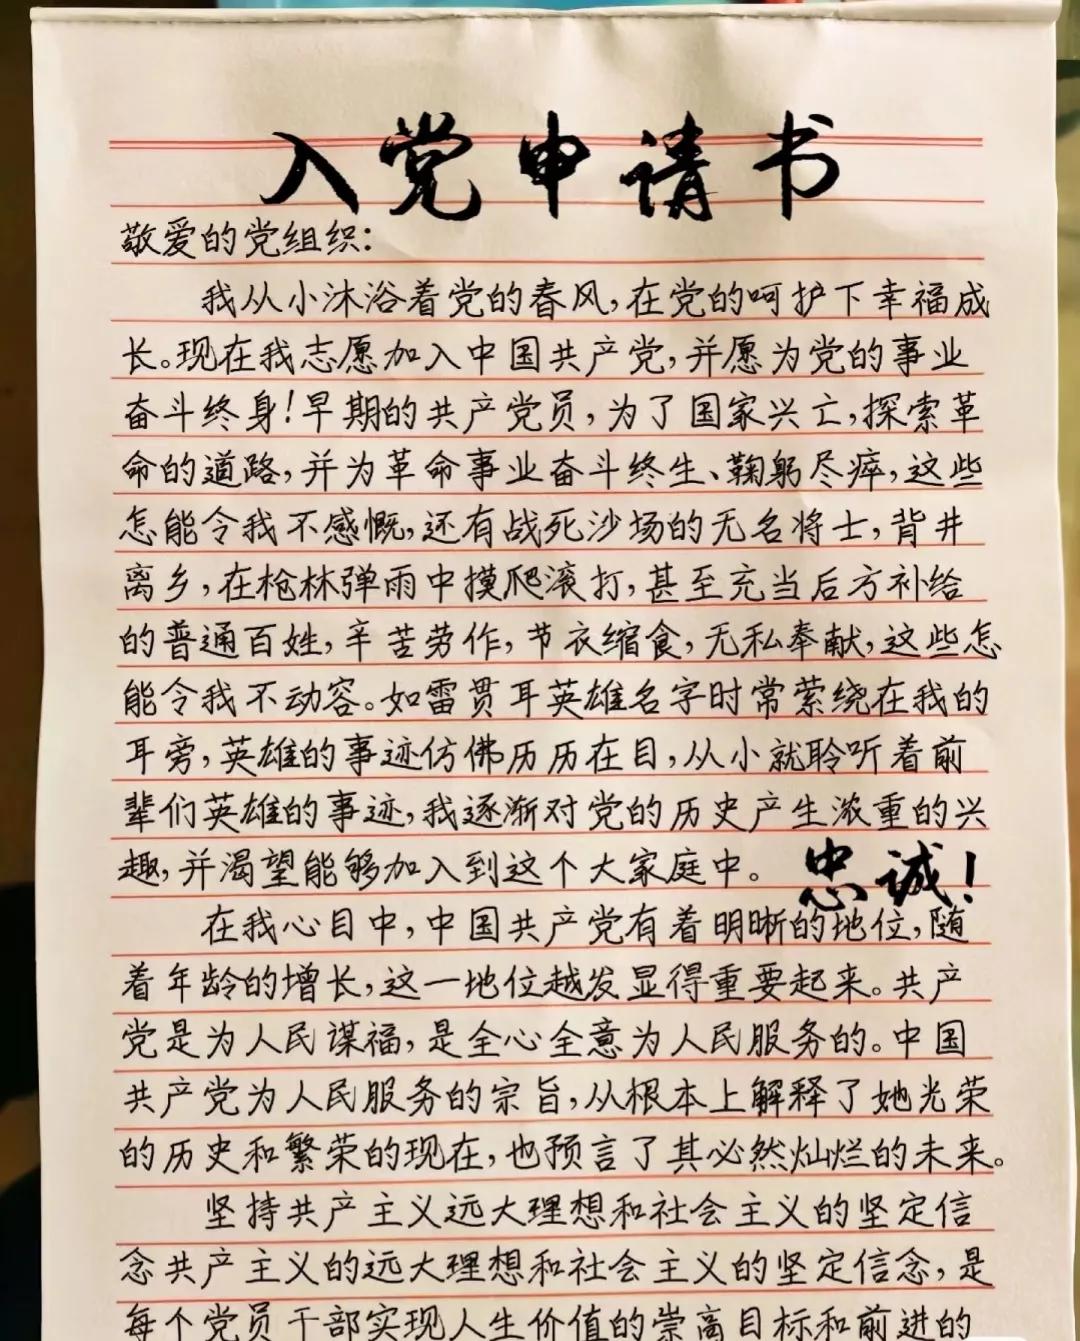 入党申请书
敬爱的党组织：
我从小沐浴着党的春风，在党的呵护下幸福成
长。现在我志愿加入中国共产党，并愿为党的事业
奋斗终身！早期的共产党员，为了国家兴亡，探索革
命的道路，并为革命事业奋斗终生、鞠躬尽瘁，这些
怎能令我不感慨，还有战死沙场的无名将士，背井
离乡，在枪林弹雨中摸爬滚打，甚至充当后方补给
的普通百姓，辛苦劳作，节衣缩食，无私奉献，这些怎
能令我不动容。如雷贯耳英雄名字时常萦绕在我的
耳旁，英雄的事迹仿佛历历在目，从小就聆听着前
辈们英雄的事迹，我逐渐对党的历史产生浓重的兴
趣，并渴望能够加入到这个大家庭中。 忠诚！
在我心目中，中国共产党有着明晰的地位，随
着年龄的增长，这一地位越发显得重要起来。共产
党是为人民谋福，是全心全意为人民服务的。中国
共产党为人民服务的宗旨，从根本上解释了她光荣
的历史和繁荣的现在，也预言了其必然灿烂的未来。
坚持共产主义远大理想和社会主义的坚定信
念共产主义的远大理想和社会主义的坚定信念，是
每个党员干部实现人生价值的崇高目标和前进的